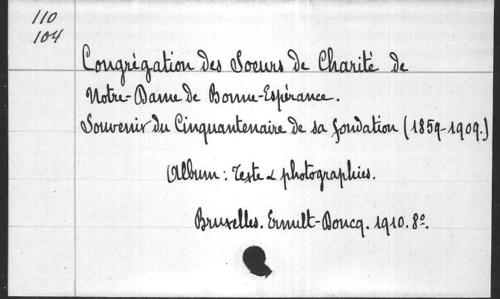 110
104
Congrégation des Soeurs de Charité de
Notre-Dame de Bonne-Espérance.
Souvenir du Cinquantenaire de sa fondation (1859-1909.)
Album: Texte & photographies.
Bruxelles. Ernult-Doncq. 1910. 8º.